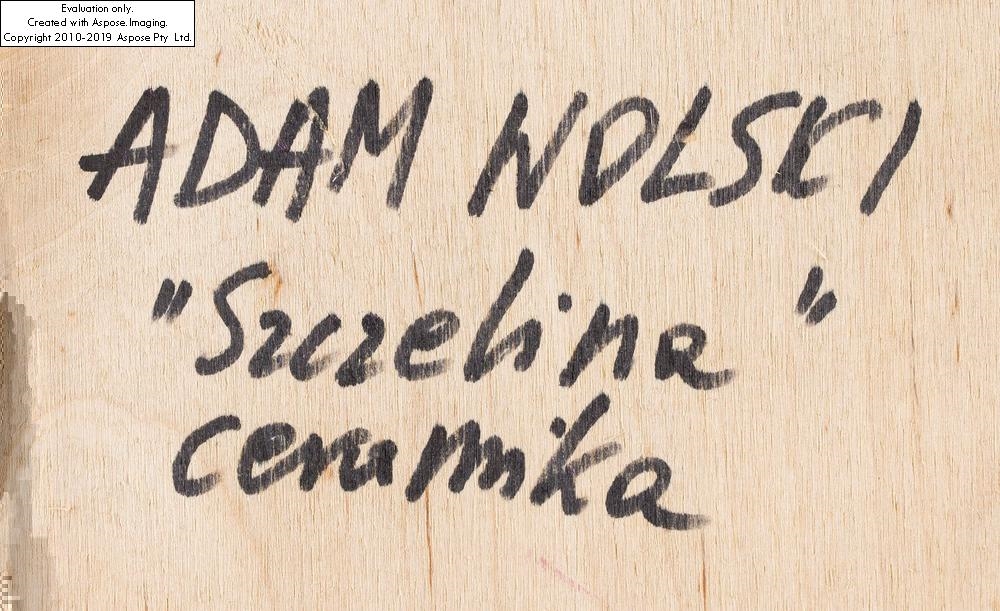 Evaluation only.
Created with Aspose.Imaging.
Copyright 2010-2019 Aspose Pty Ltd.
ADAM NOLSKI
"Szczelina"
ceramika